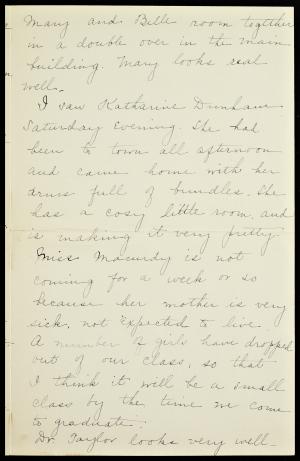 Mary and Belle room together
in a double over in the main
building. Mary looks real
well.
I saw Katharine Dunham
Saturday evening. She had
been to town all afternoon
and came home with her
arms full of bundles. She
has a cosy little room, and
is making it very pretty.
Miss Macurdy is not
coming for a week or so
because her mother is very
sick, not expected to live.
A number of girls have dropped
out of our class, so that
I think it will be a small
class by the time we come
to graduate.
Dr. Taylor looks very well.